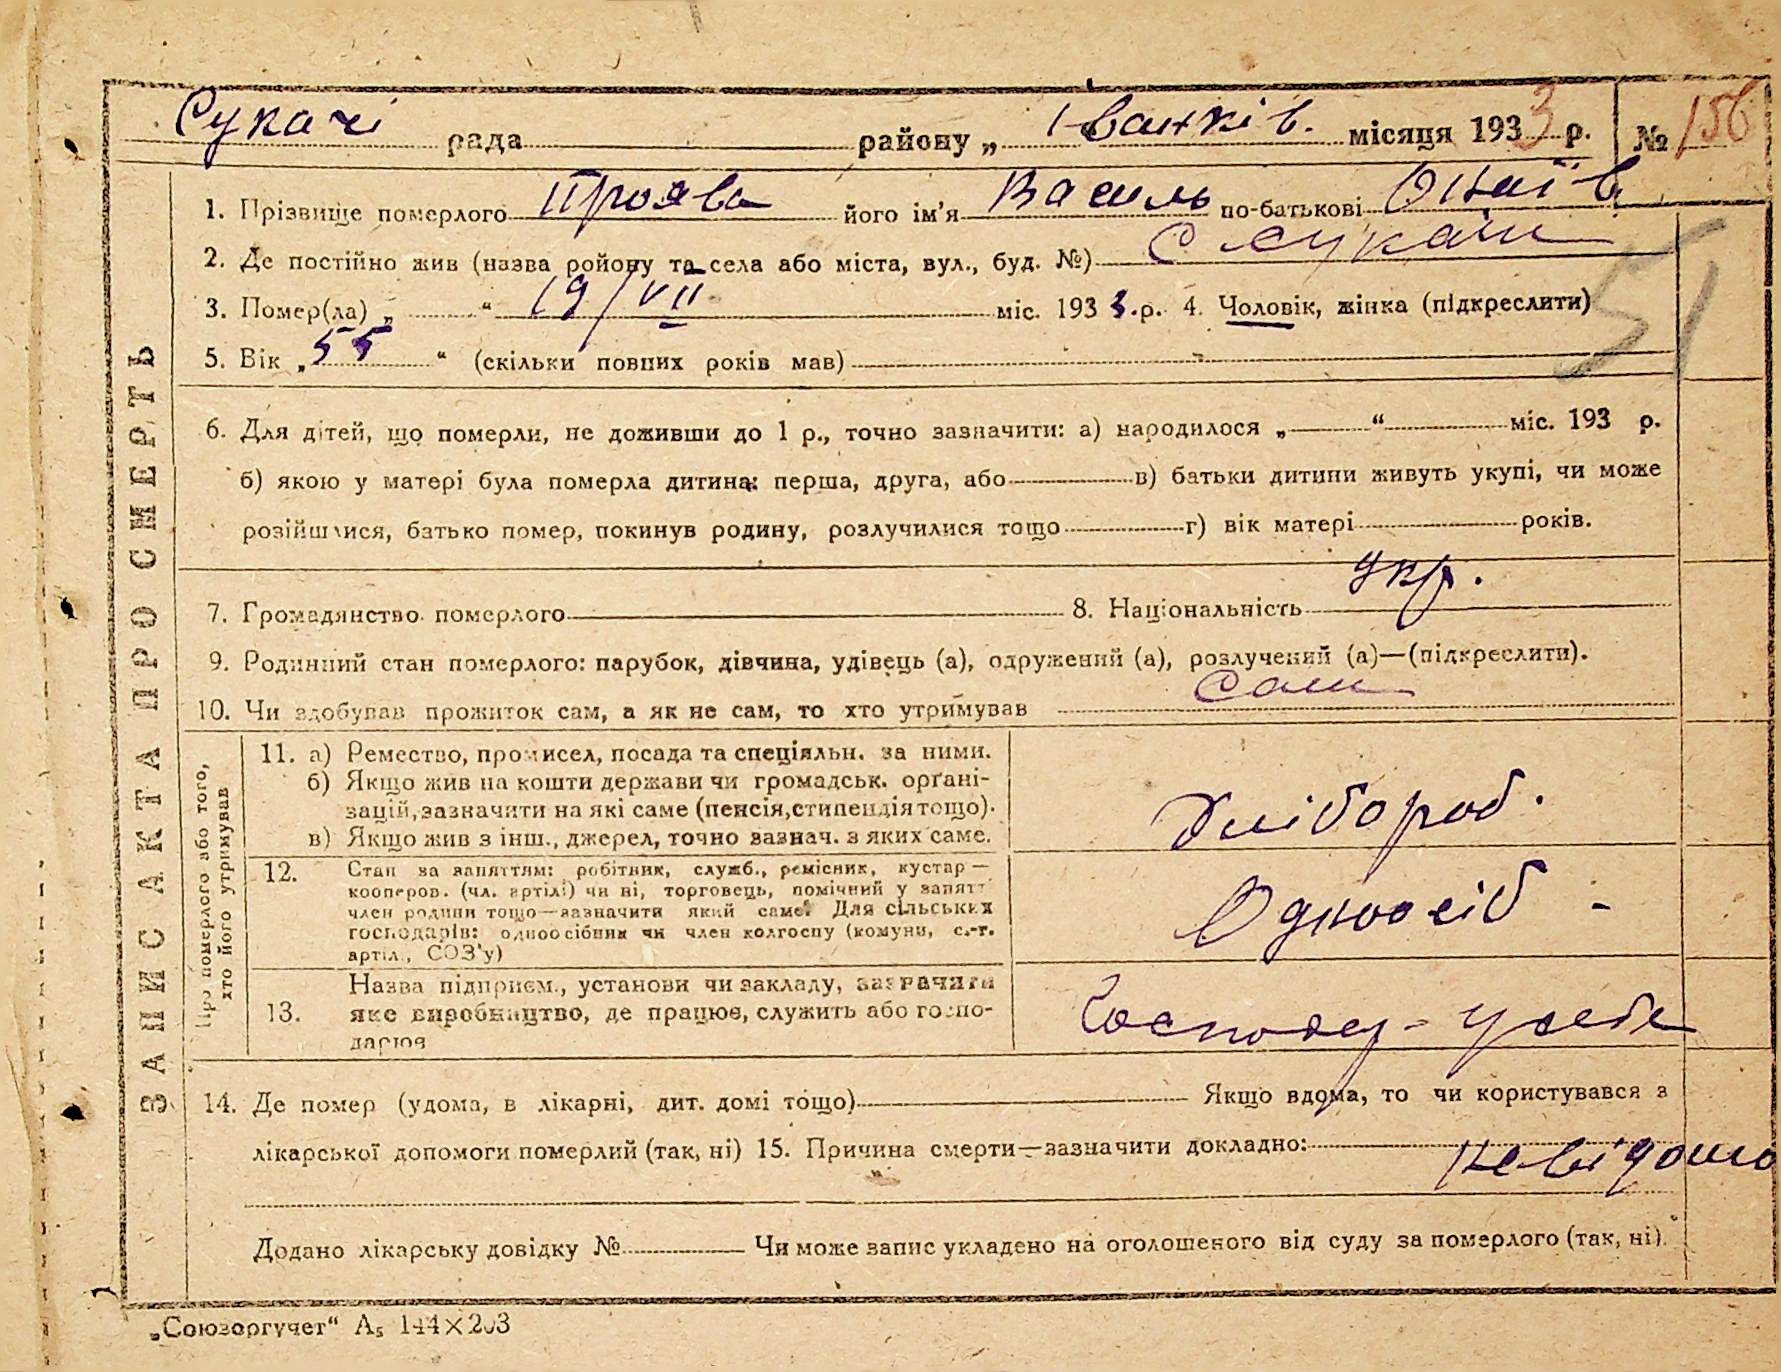 Сукачі рада району „ Іванків. місяця 1933 р. № 156
1. Прізвище померлого Проява його ім'я Василь по-батькові
2. Де постійно жив (назва ройону та села або міста, вул., буд. №) с Сукачі
3. Помер(ла) „ “ 19/VII міс. 1933.р. 4. Чоловік, жінка (підкреслити)
51
5. Вік „ 55 “ (скільки повних років мав)
6. Для дітей, що померли, не доживши до 1 р., точно зазначити: а) народилося „ “ міс. 193 р.
б) якою у матері була померла дитина: перша, друга, або в) батьки дитини живуть укупі, чи може
розійшлися, батько помер, покинув родину, розлучилися тощо г) вік матері років.
7. Громадянство померлого 8. Національність укр.
9. Родинний стан померлого: парубок, дівчина, удівець (а), одружений (а), розлучений (а)—(підкреслити).
10. Чи здобував прожиток сам, а як не сам, то хто утримував сам
ЗАПИС АКТА ПРО СМЕРТЬ
Про померлого або того,
хто його утримував
11. а) Ремество, промисел, посада та спеціяльн. за ними.
б) Якщо жив на кошти держави чи громадськ. орґані-
зацій, зазначити на які саме (пенсія, стипендія тощо).
в) Якщо жив з інш., джерел, точно зазнач. з яких саме.
Хлібороб.
12. Стан за заняттям: робітник, служб., ремісник, кустар —
кооперов. (чл. артілі) чи ні, торговець, помічний у занятт
член родини тощо—зазначити який саме. Для сільських
господарів: одноосібник чи член колгоспу (комуни, с.-г.
артіл., СОЗ'у)
Одноосіб -
13. Назва підприєм., установи чи закладу, зазначити
яке виробництво, де працює, служить або госпо-
дарює
Господар - у себе
14. Де помер (удома, в лікарні, дит. домі тощо) Якщо вдома, то чи користувався з
лікарської допомоги померлий (так, ні) 15. Причина смерти—зазначити докладно: невідома
Додано лікарську довідку № Чи може запис укладено на оголошеного від суду за померлого (так, ні).
„Союзоргучет“ А5 144×203